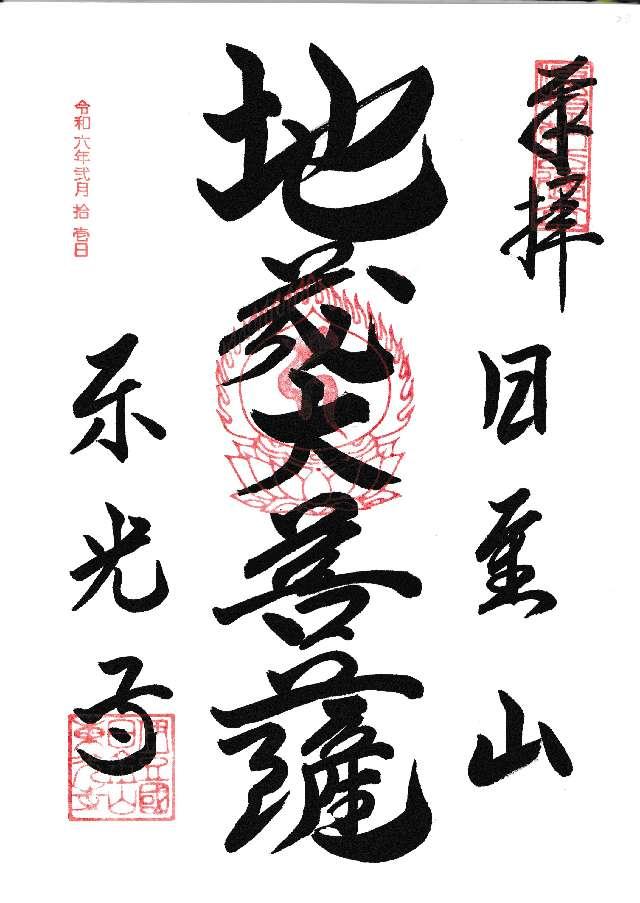 奉拝
日金山
地蔵大菩薩
東光寺
令和六年弐月拾壱日